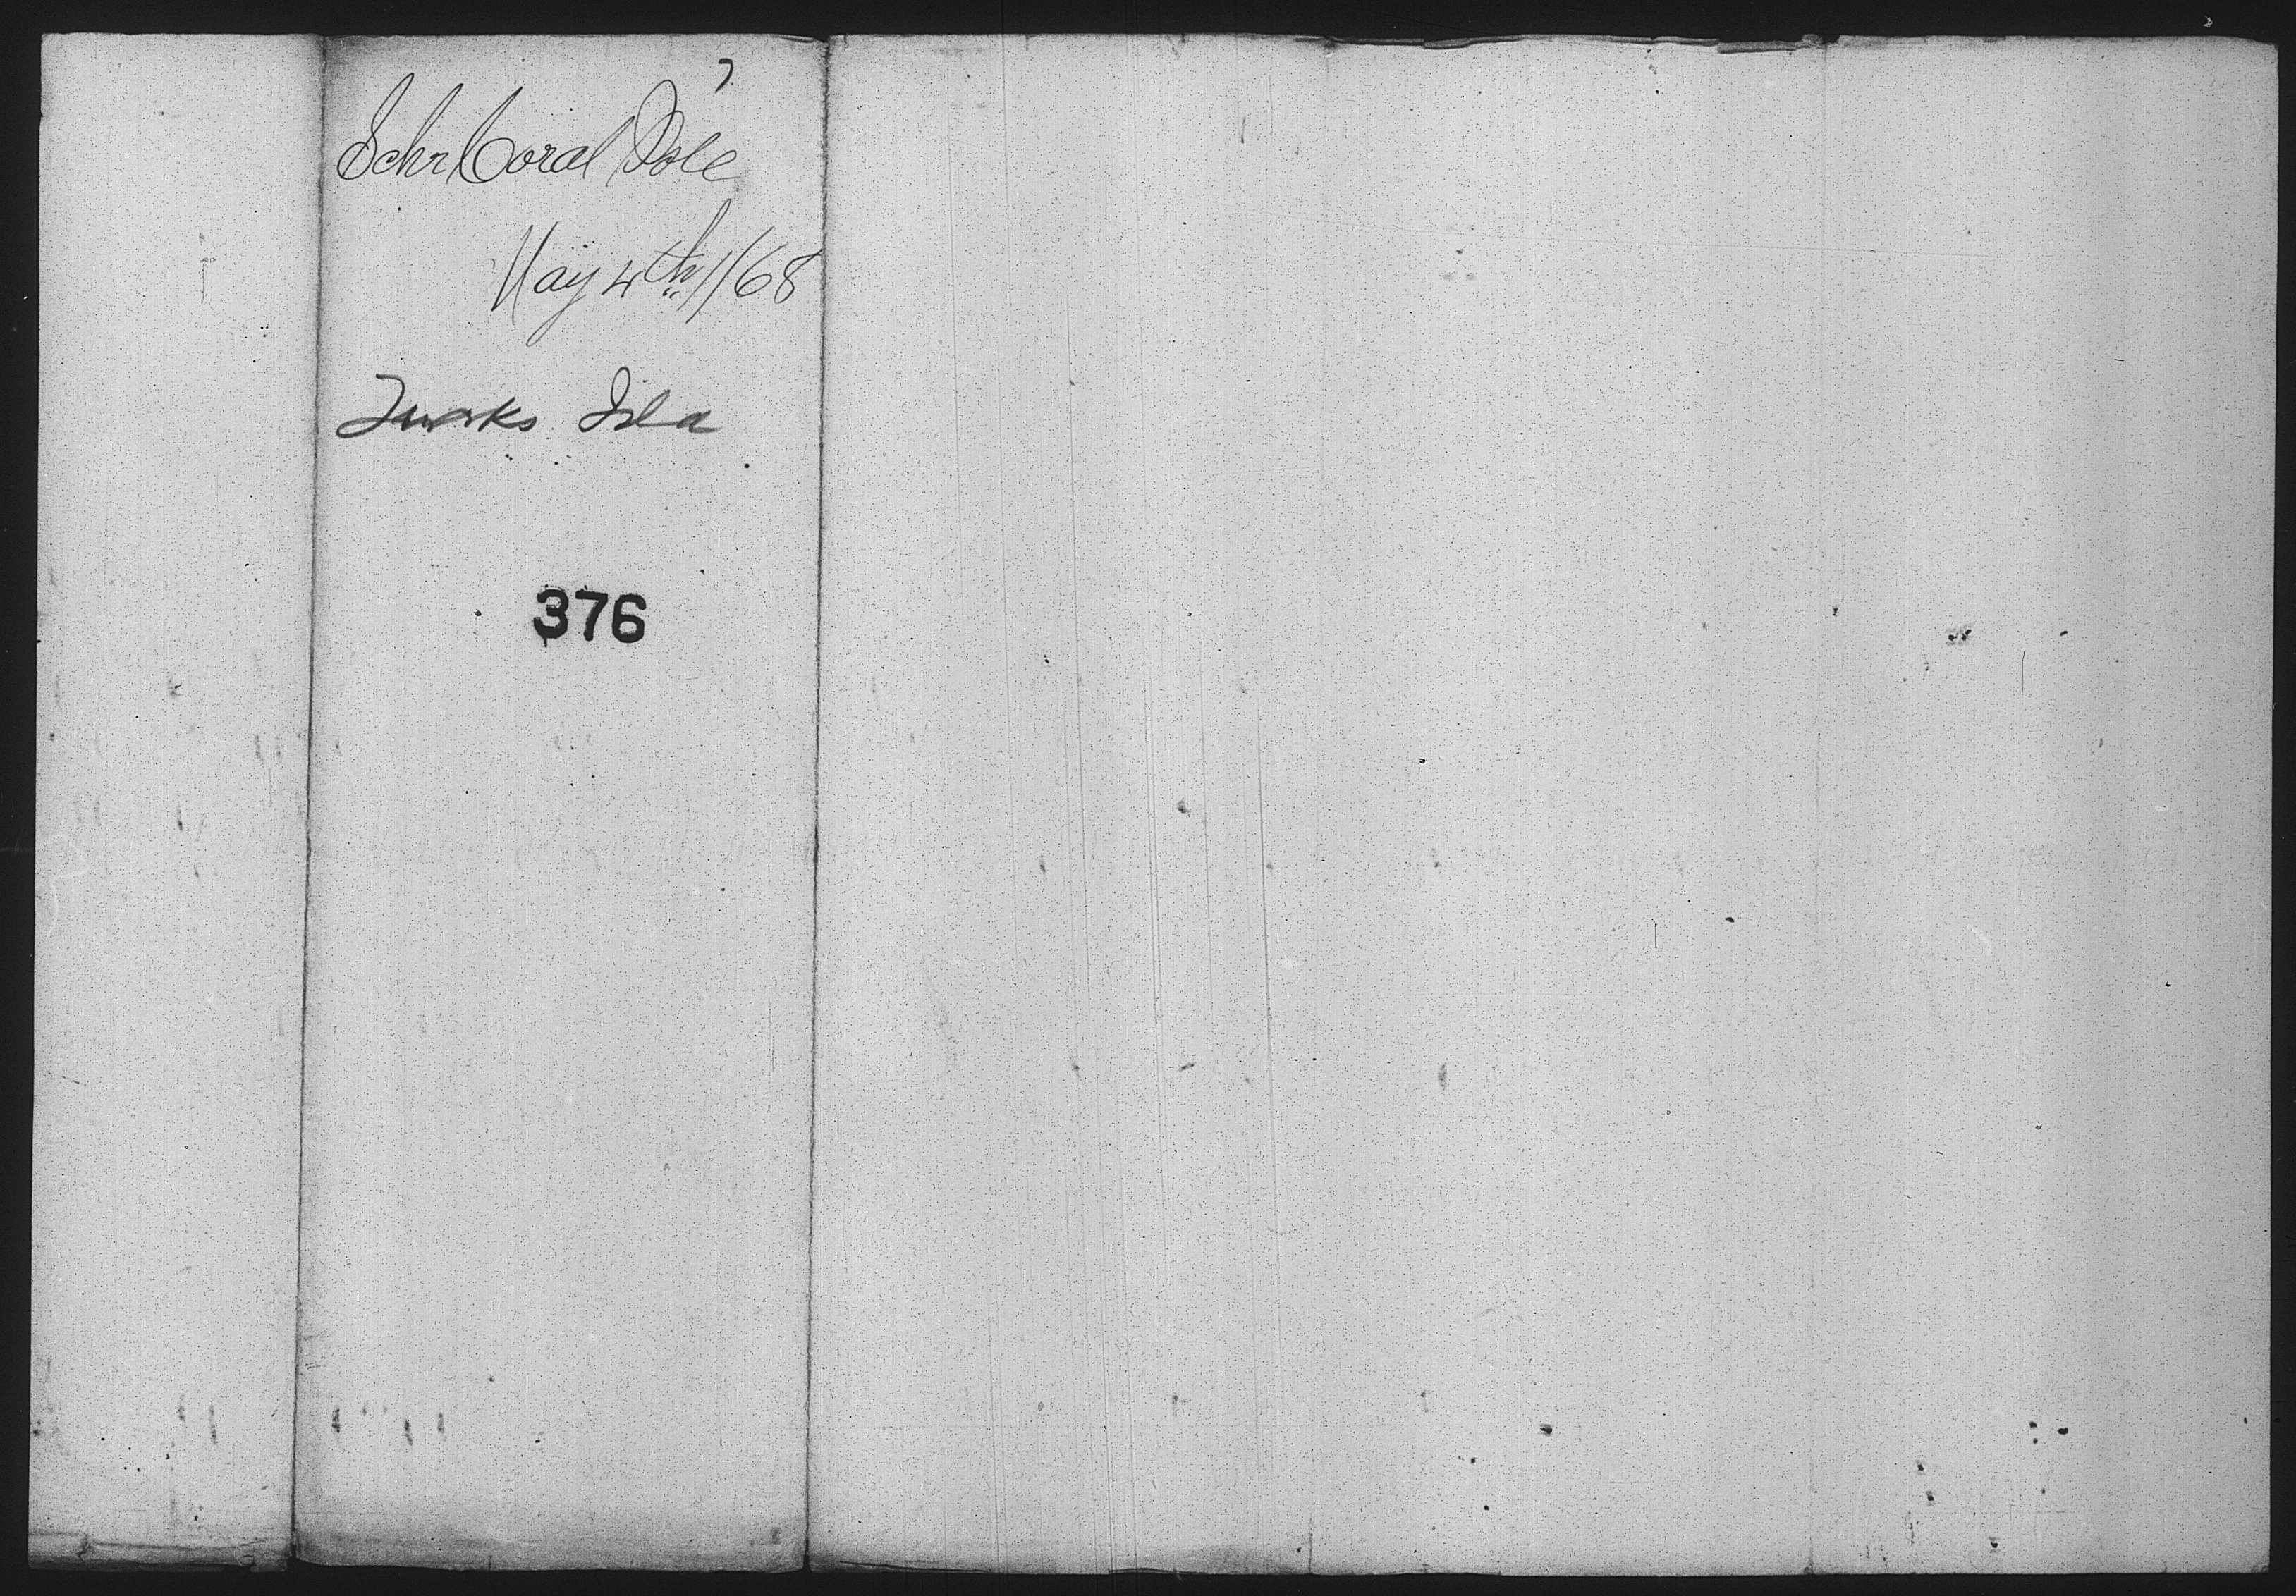 7
Schr Coral Isle
May 4th /68
Turks Isla
376